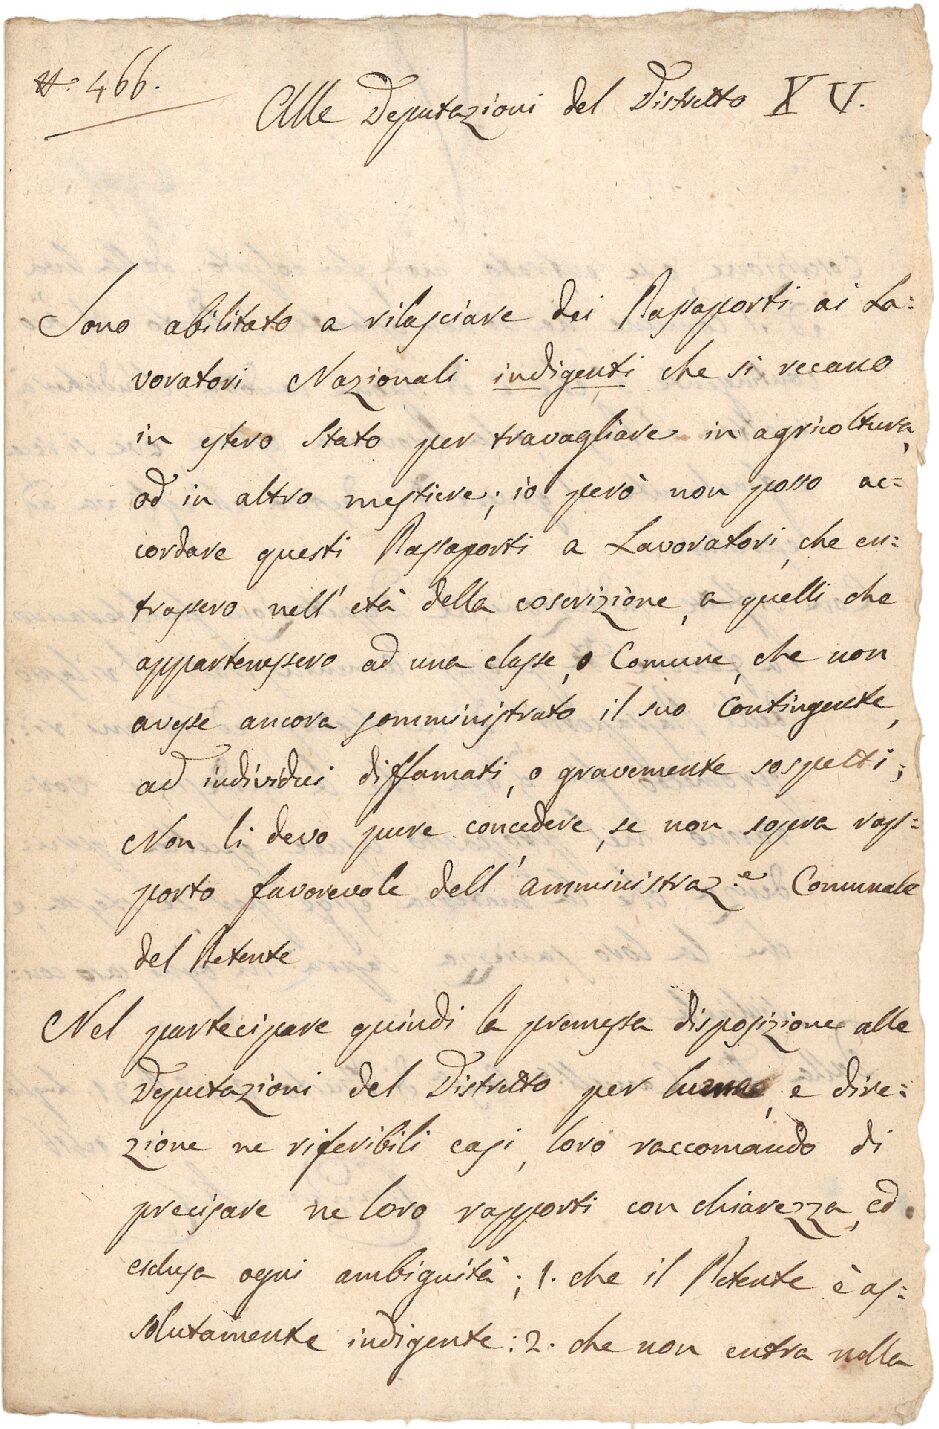 N.° 466.
Alle Deputazioni del Distretto XV.
Sono abilitato a rilasciare dei Passaporti ai La=
voratori Nazionali indigenti che si recano
in estero Stato per travagliare in agricoltura,
od in altro mestiere; io però non posso ac=
cordare questi Passaporti a Lavoratori, che en=
trassero nell' età della coscrizione, a quelli che
appartenessero ad una classe, o Comune, che non
avesse ancora somministrato il suo Contingente,
ad individui diffamati, o gravemente sospetti;
Non li devo pure concedere, se non sopra rap=
porto favorevole dell' Amministraz.e Comunale
del Petente
Nel partecipare quindi la premessa disposizione alle
Deputazioni del Distretto per lume, e dire=
zione ne riferibili casi, loro raccomando di
precisare ne loro rapporti con chiarezza, ed
esclusa ogni ambiguità; 1. che il Petente è as=
solutamente indigente: 2. che non entra nella